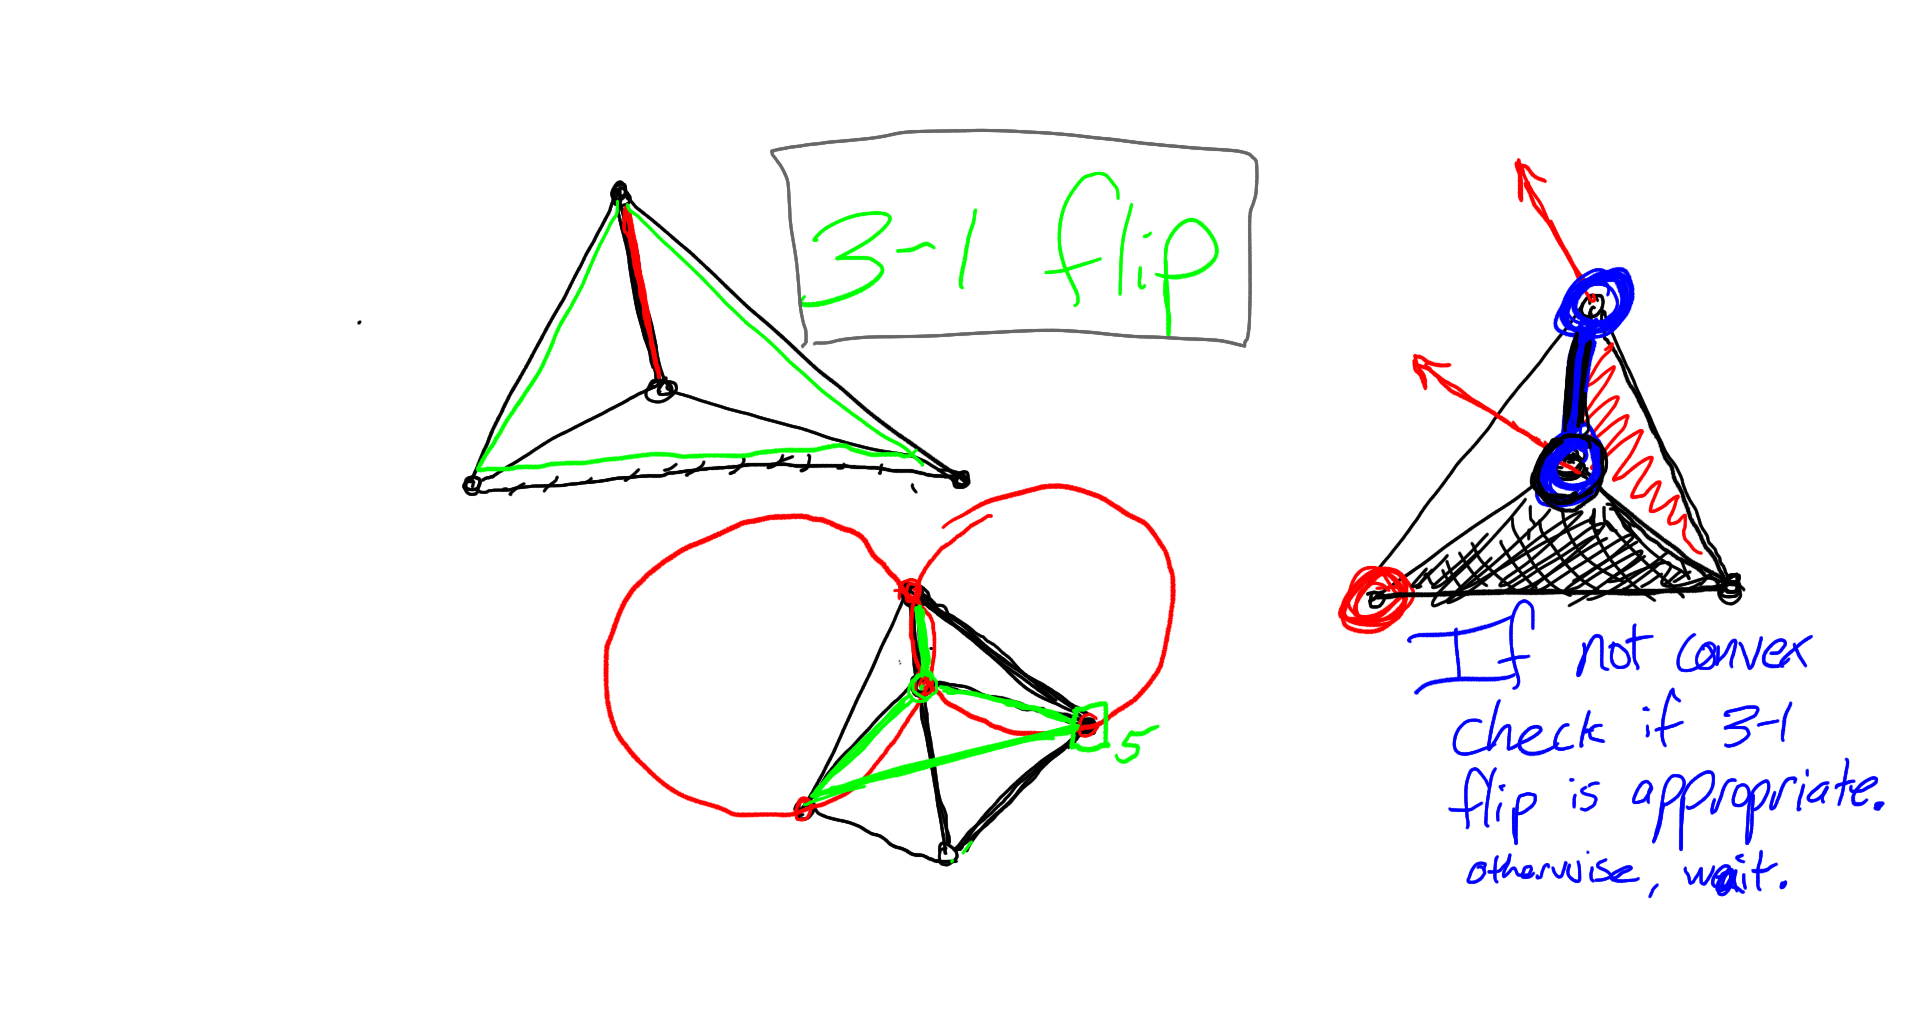 3-1 flip
5
If not convex
check if 3-1
flip is appropriate.
otherwise, wait.